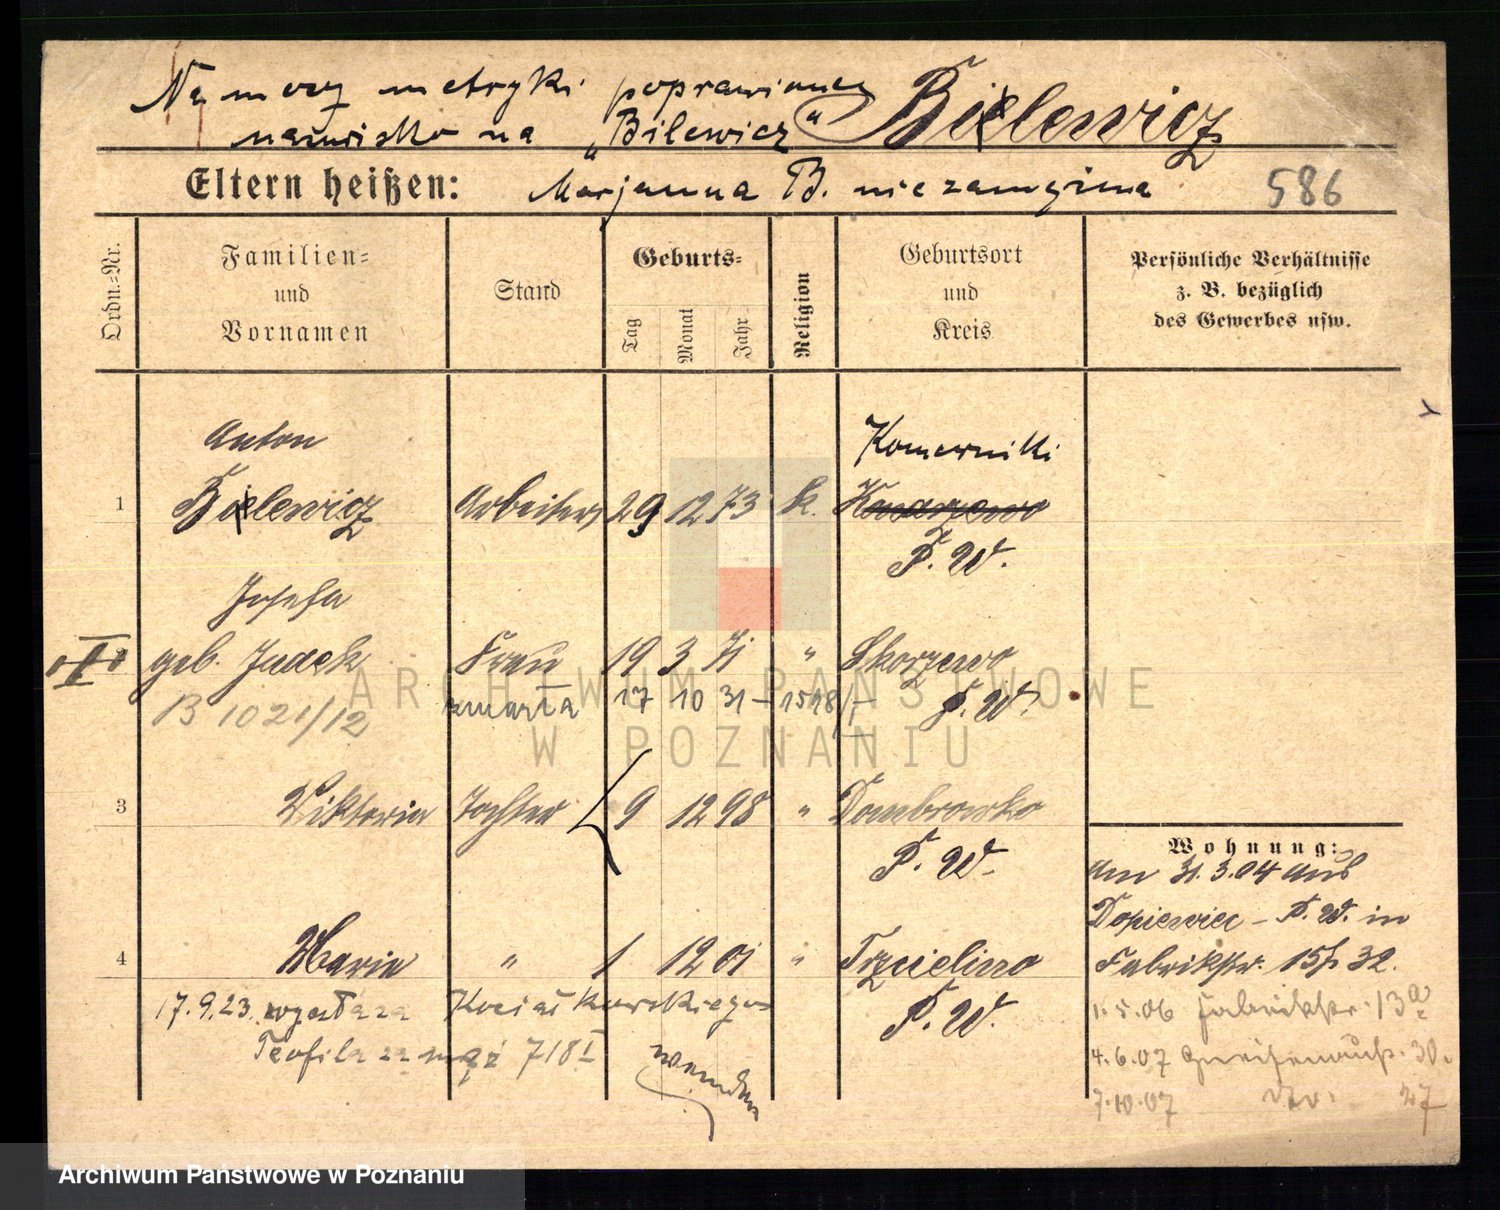 Na mocy metryki poprawiono
nazwisko na „Bilewicz“
Bielewicz
Eltern heißen: Marjanna B. niezamężna 586
Ordn.-Nr.
Familien-
und
Vornamen
Stand
Geburts-
Tag
Monat
Jahr
Religion
Geburtsort
und
Kreis
Persönliche Verhältnisse
z. B. bezüglich
des Gewerbes usw.
Anton Komorniki
1 Bielewicz Arbeiter 29 12 73 k. Konarzewo
P. W.
Josefa
geb. Judek Frau 19 3 71 " Skorzewo
B 1021/12 zmarła 17 10 31 – 1518/I P. W.
3 Viktoria Tochter 9 12 98 " Dombrowko
P. W.
4 Marie " 1 12 01 " Trzcielino
P. W.
17.9.23. wyszła za Kociałkowskiego
Teofila za mąż 718 I
wenden
Wohnung:
am 31.3.04 aus
Dopiewiec – P. W. in
Fabrikstr. 15 32.
1.5.06 Fabrikstr. 13a
4.6.07 Gneisenaustr. 30.
7.10.07 dto. 27
ARCHIWUM PAŃSTWOWE
W POZNANIU
Archiwum Państwowe w Poznaniu